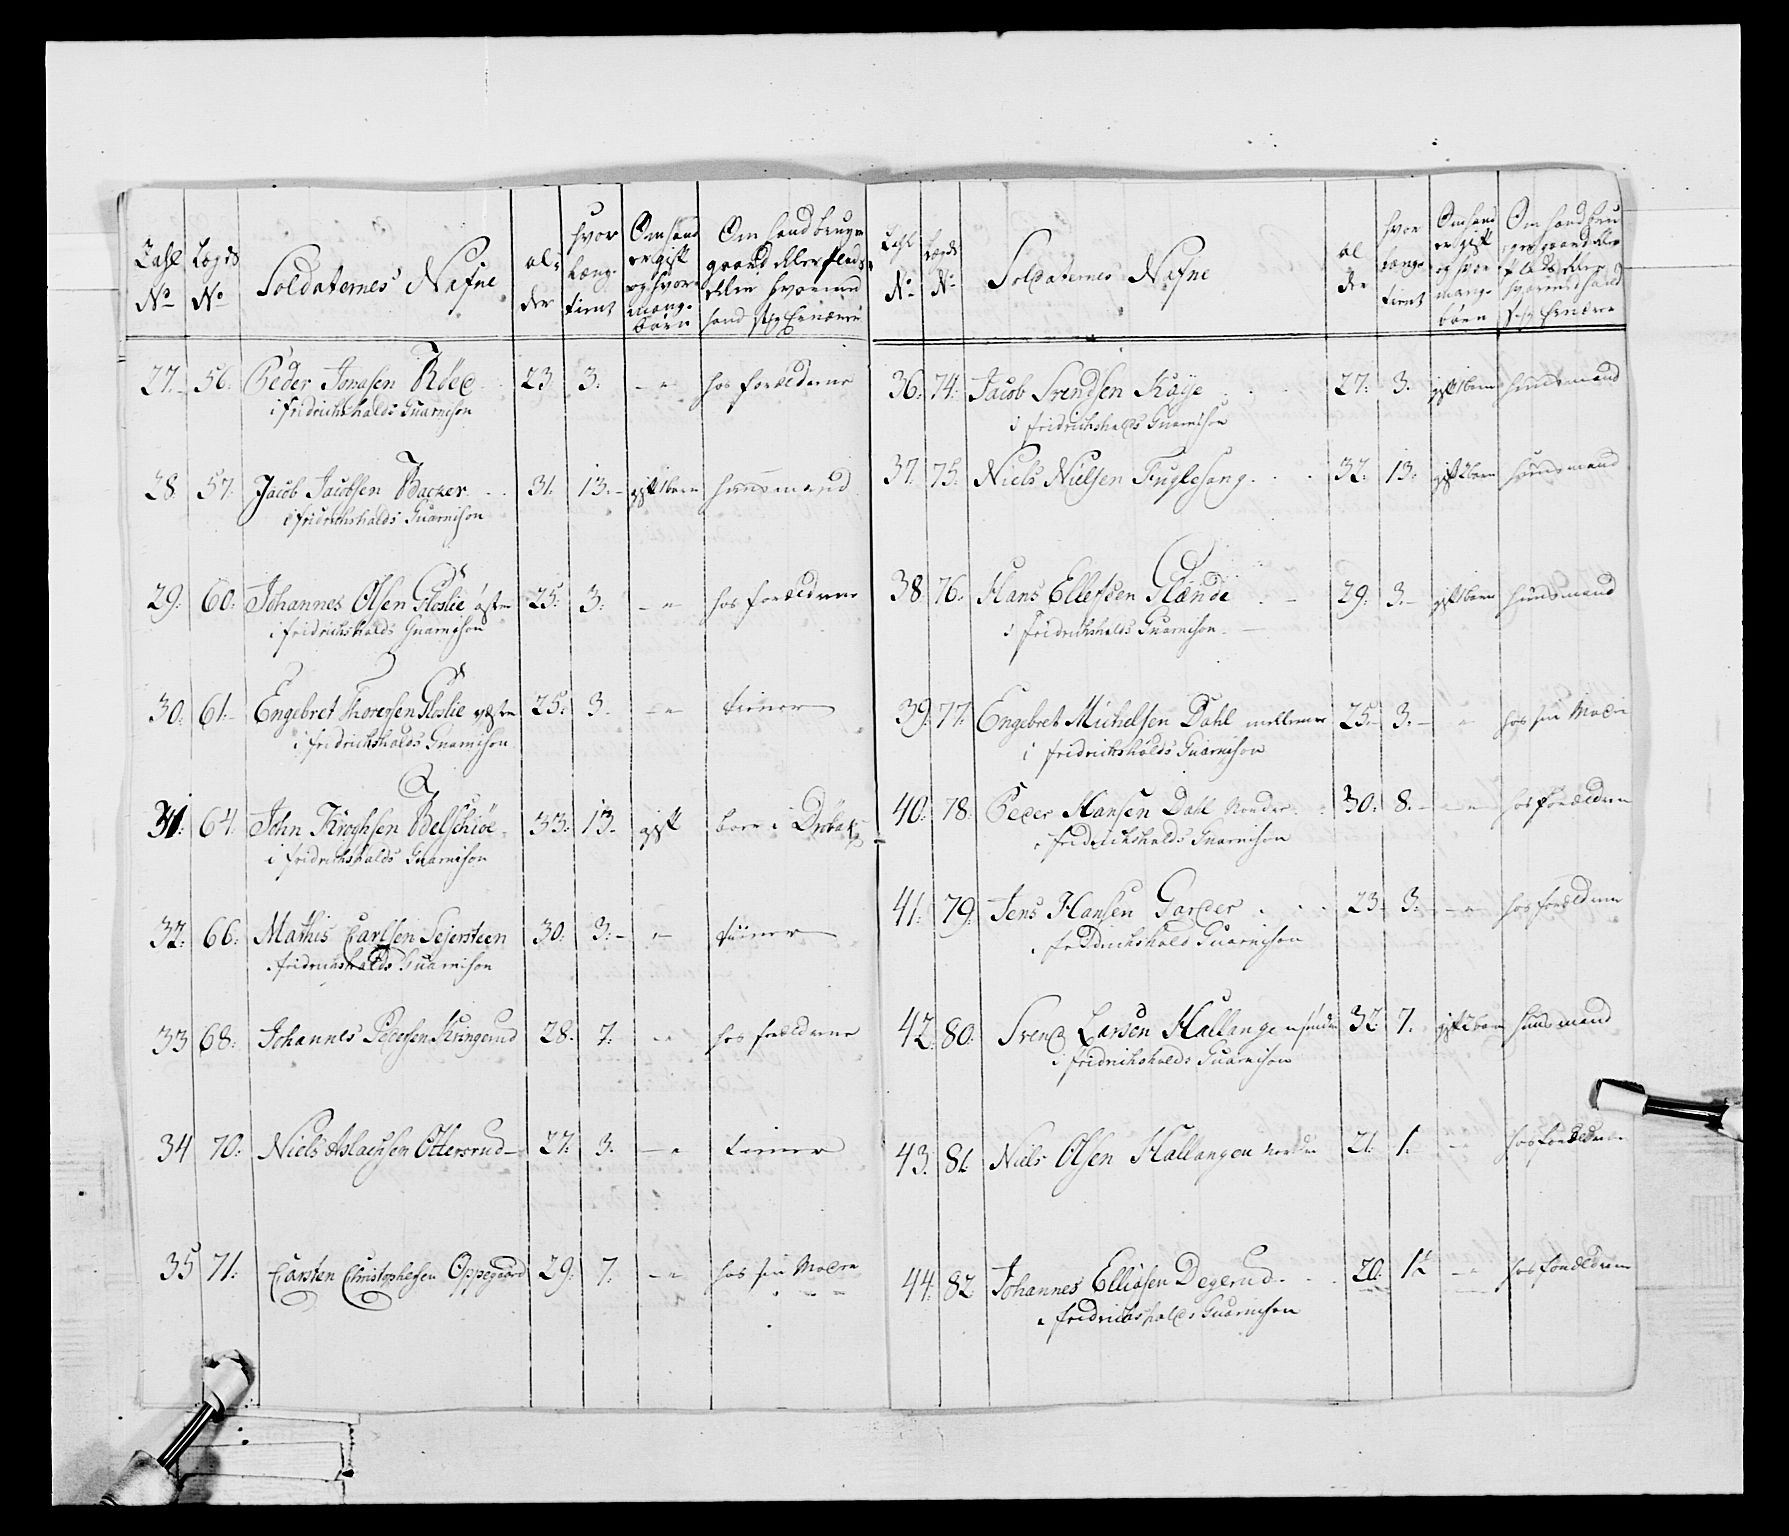 Tahl No | Lægds No | Soldaternes Nafne | al: der | hvor længe tient | Om hand er gift og hvor mange børn | Om hand bruger gaard eller Plads eller hvormed hand sig Ernærer
27. 56. Peder Jonasen Röed . . 23. 3. — " hos forældrene
i fridrichshalds Guarnison
28. 57. Jacob Jacobsen Backer . . 31. 13. gift 1 barn huusmand
i fridrichshalds Guarnison
29. 60. Johannes Olsen Floslie østre 25. 3. — " hos forældrene
i fridrichshalds Guarnison
30. 61. Engebret Thoresen Floslie 25. 3. — " tiener
i fridrichshalds Guarnison
31. 64. John Kroghsen Belschiöe 33. 13. gift boer i Dröbak
i fridrichshalds Guarnison
32. 66. Mathis Carlsen Sejersteen 30. 3. — " tiener
fridrichshalds Guarnison
33 68. Johannes Pedersen Kringerud 28. 7. — " hos forældrene
34 70. Niels Aslachsen Ottersrud 27. 3. — " tiener
35 71. Carsten Christophersen Oppegaard 29. 7. — " hos sin Moder
Tahl No | Lægds No | Soldaternes Nafne | al der | hvor længe tient | Om hand er gift og hvor mange børn | Om hand bruger gaard eller Plads eller hvormed hand sig Ernærer
36. 74. Jacob Svendsen Kaye . . 27. 3. gift 1 barn huusmand
i fridrichshalds Guarnison
37. 75. Niels Nielsen Fuglesang . . 32. 13. gift 2 barn huusmand
38 76. Hans Ellefsen Glænde . — 29. 3. gift 1 barn huusmand
i fridrichshalds Guarnison
39. 77. Engebret Michelsen Dahl mellem 25. 3. — " hos sin Moder
i fridrichshalds Guarnison
40. 78. Peder Hansen Dahl Nordre . 30. 8. — " hos forældrene
fridrichshalds Guarnison
41. 79. Jens Hansen Garder . . . 23. 3. — " hos forældrene
fridrichshald Guarnison
42. 80. Svend Larsen Hallangen 32. 7. gift 2 barn huusmand
i fridrichshalds Guarnison
43. 81. Niels Olsen Hallangen Nordre 21. 1. — " hos forældrene
44. 82. Johannes Elliasen Degerud . . 20. hos forældrene
fridrichshalds Guarnison